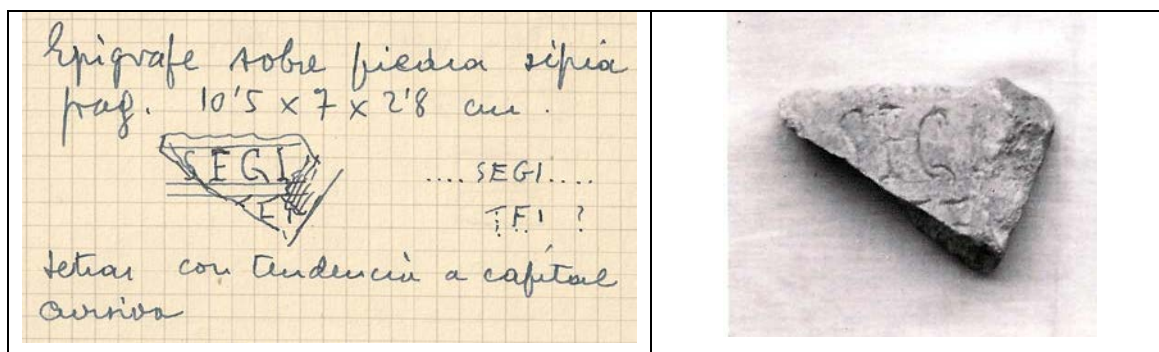 Epígrafe sobre piedra sípia
frag. 10'5 x 7 x 2'8 cm.
SEGI
EI
....SEGI....
TFI ?
letras con tendencia a capital
cursiva